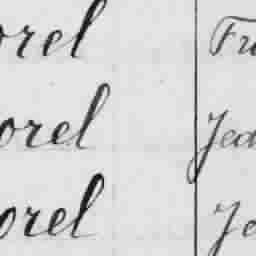 orel Fr
orel Jea
orel Je